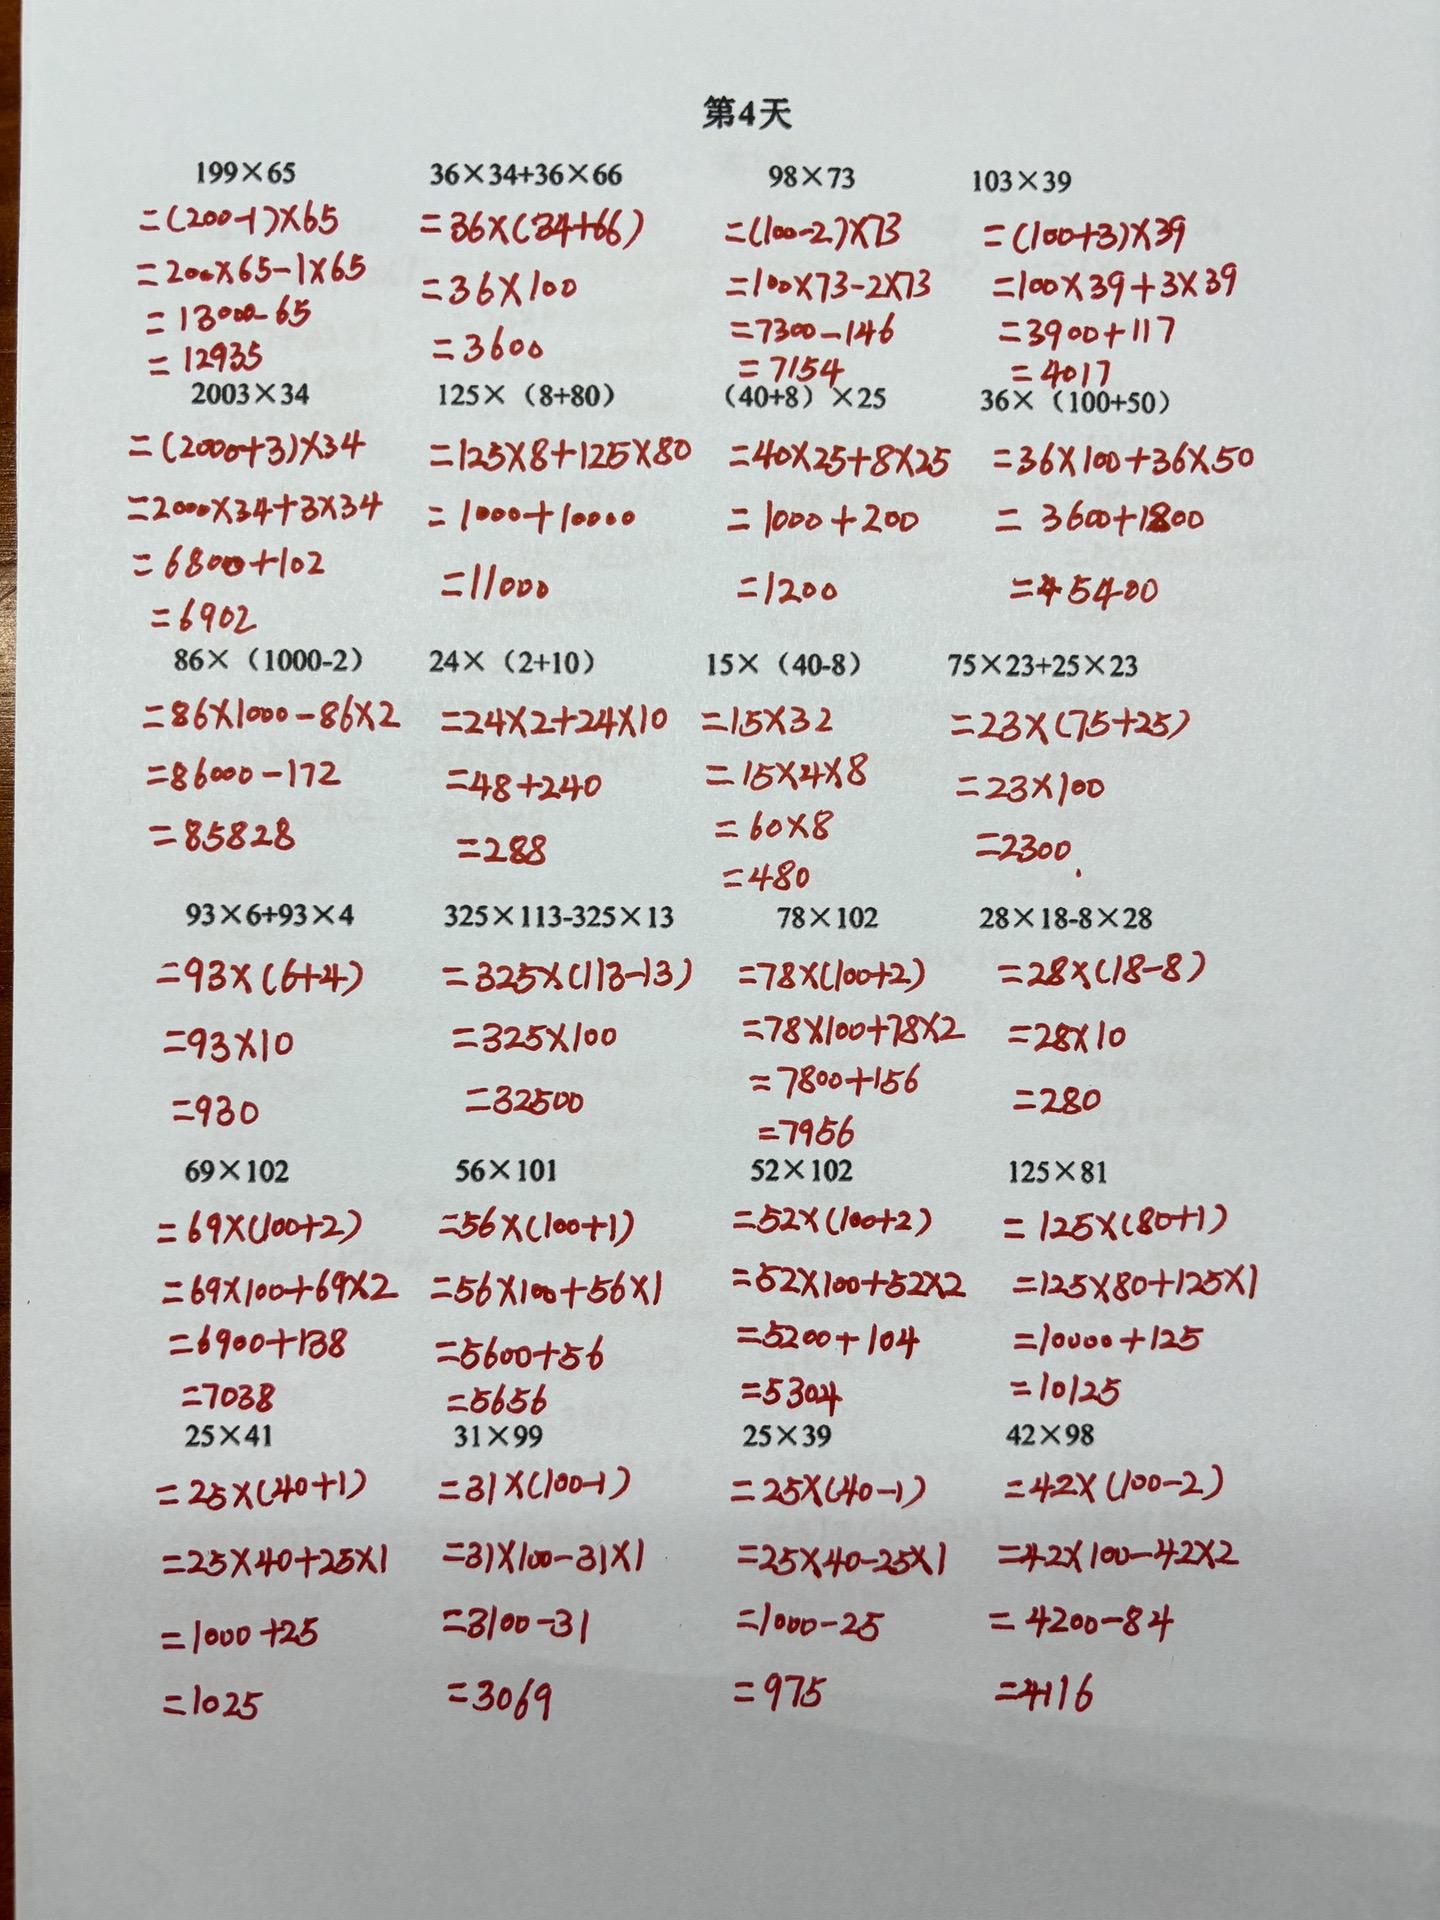 第4天
199×65
=(200-1)×65
=200×65-1×65
=13000-65
=12935
36×34+36×66
=36×(34+66)
=36×100
=3600
98×73
=(100-2)×73
=100×73-2×73
=7300-146
=7154
103×39
=(100+3)×39
=100×39+3×39
=3900+117
=4017
2003×34
=(2000+3)×34
=2000×34+3×34
=6800+102
=6902
125×（8+80）
=125×8+125×80
=1000+10000
=11000
（40+8）×25
=40×25+8×25
=1000+200
=1200
36×（100+50）
=36×100+36×50
=3600+1800
=5400
86×（1000-2）
=86×1000-86×2
=86000-172
=85828
24×（2+10）
=24×2+24×10
=48+240
=288
15×（40-8）
=15×32
=15×4×8
=60×8
=480
75×23+25×23
=23×(75+25)
=23×100
=2300
93×6+93×4
=93×(6+4)
=93×10
=930
325×113-325×13
=325×(113-13)
=325×100
=32500
78×102
=78×(100+2)
=78×100+78×2
=7800+156
=7956
28×18-8×28
=28×(18-8)
=28×10
=280
69×102
=69×(100+2)
=69×100+69×2
=6900+138
=7038
56×101
=56×(100+1)
=56×100+56×1
=5600+56
=5656
52×102
=52×(100+2)
=52×100+52×2
=5200+104
=5304
125×81
=125×(80+1)
=125×80+125×1
=10000+125
=10125
25×41
=25×(40+1)
=25×40+25×1
=1000+25
=1025
31×99
=31×(100-1)
=31×100-31×1
=3100-31
=3069
25×39
=25×(40-1)
=25×40-25×1
=1000-25
=975
42×98
=42×(100-2)
=42×100-42×2
=4200-84
=4116